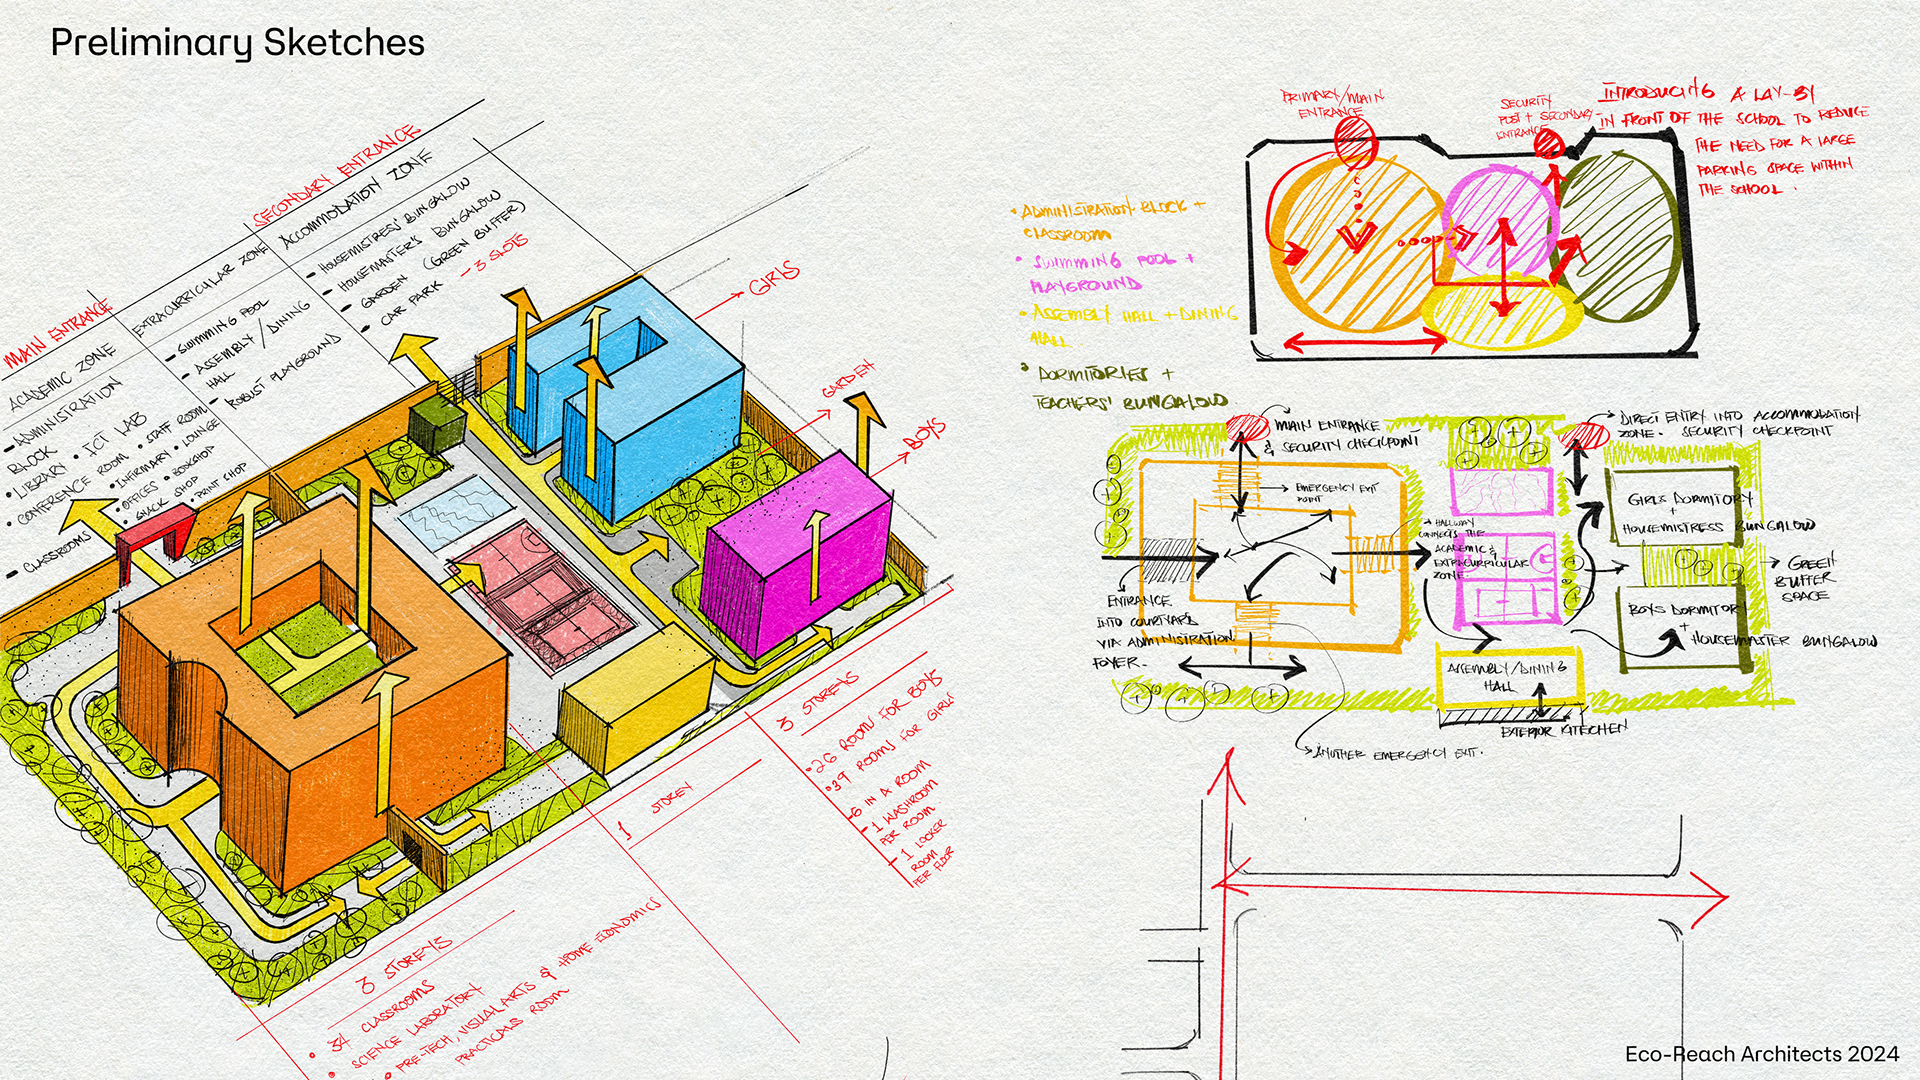 Preliminary Sketches
MAIN ENTRANCE
ACADEMIC ZONE
- ADMINISTRATION
BLOCK
• LIBRARY • ICT LAB
• CONFERENCE ROOM • STAFF ROOM
• INFIRMARY • LOUNGE
• OFFICES • BOOKSHOP
• SNACK SHOP • PRINT SHOP
- CLASSROOMS
EXTRACURRICULAR ZONE
- SWIMMING POOL
- ASSEMBLY / DINING
HALL
- ROBUST PLAYGROUND
SECONDARY ENTRANCE
ACCOMMODATION ZONE
- HOUSEMISTRESS' BUNGALOW
- HOUSEMASTER'S BUNGALOW
• GARDEN (GREEN BUFFER)
• CAR PARK - 3 SLOTS
GIRLS
GARDEN
BOYS
3 STOREYS
• 26 ROOMS FOR BOYS
• 39 ROOMS FOR GIRLS
- 6 IN A ROOM
- 1 WASHROOM
PER ROOM
- 1 LOCKER
ROOM
PER FLOOR
1 STOREY
3 STOREYS
• 34 CLASSROOMS
• SCIENCE LABORATORY
• PRE-TECH, VISUAL ARTS & HOME ECONOMICS
PRACTICALS ROOM
PRIMARY/MAIN
ENTRANCE
SECURITY
POST + SECONDARY
ENTRANCE
INTRODUCING A LAY-BY
IN FRONT OF THE SCHOOL TO REDUCE
THE NEED FOR A LARGE
PARKING SPACE WITHIN
THE SCHOOL.
• ADMINISTRATION BLOCK +
CLASSROOM
• SWIMMING POOL +
PLAYGROUND
• ASSEMBLY HALL + DINING
HALL
• DORMITORIES +
TEACHERS' BUNGALOW
MAIN ENTRANCE
& SECURITY CHECKPOINT
EMERGENCY EXIT
POINT
DIRECT ENTRY INTO ACCOMMODATION
ZONE. SECURITY CHECKPOINT
HALLWAY
CONNECTS THE
ACADEMIC &
EXTRACURRICULAR
ZONE.
GIRLS DORMITORY
+
HOUSEMISTRESS BUNGALOW
GREEN
BUFFER
SPACE
BOYS DORMITORY
+
HOUSEMASTER BUNGALOW
ENTRANCE
INTO COURTYARD
VIA ADMINISTRATION
FOYER.
ASSEMBLY/DINING
HALL
EXTERIOR KITCHEN
ANOTHER EMERGENCY EXIT.
Eco-Reach Architects 2024